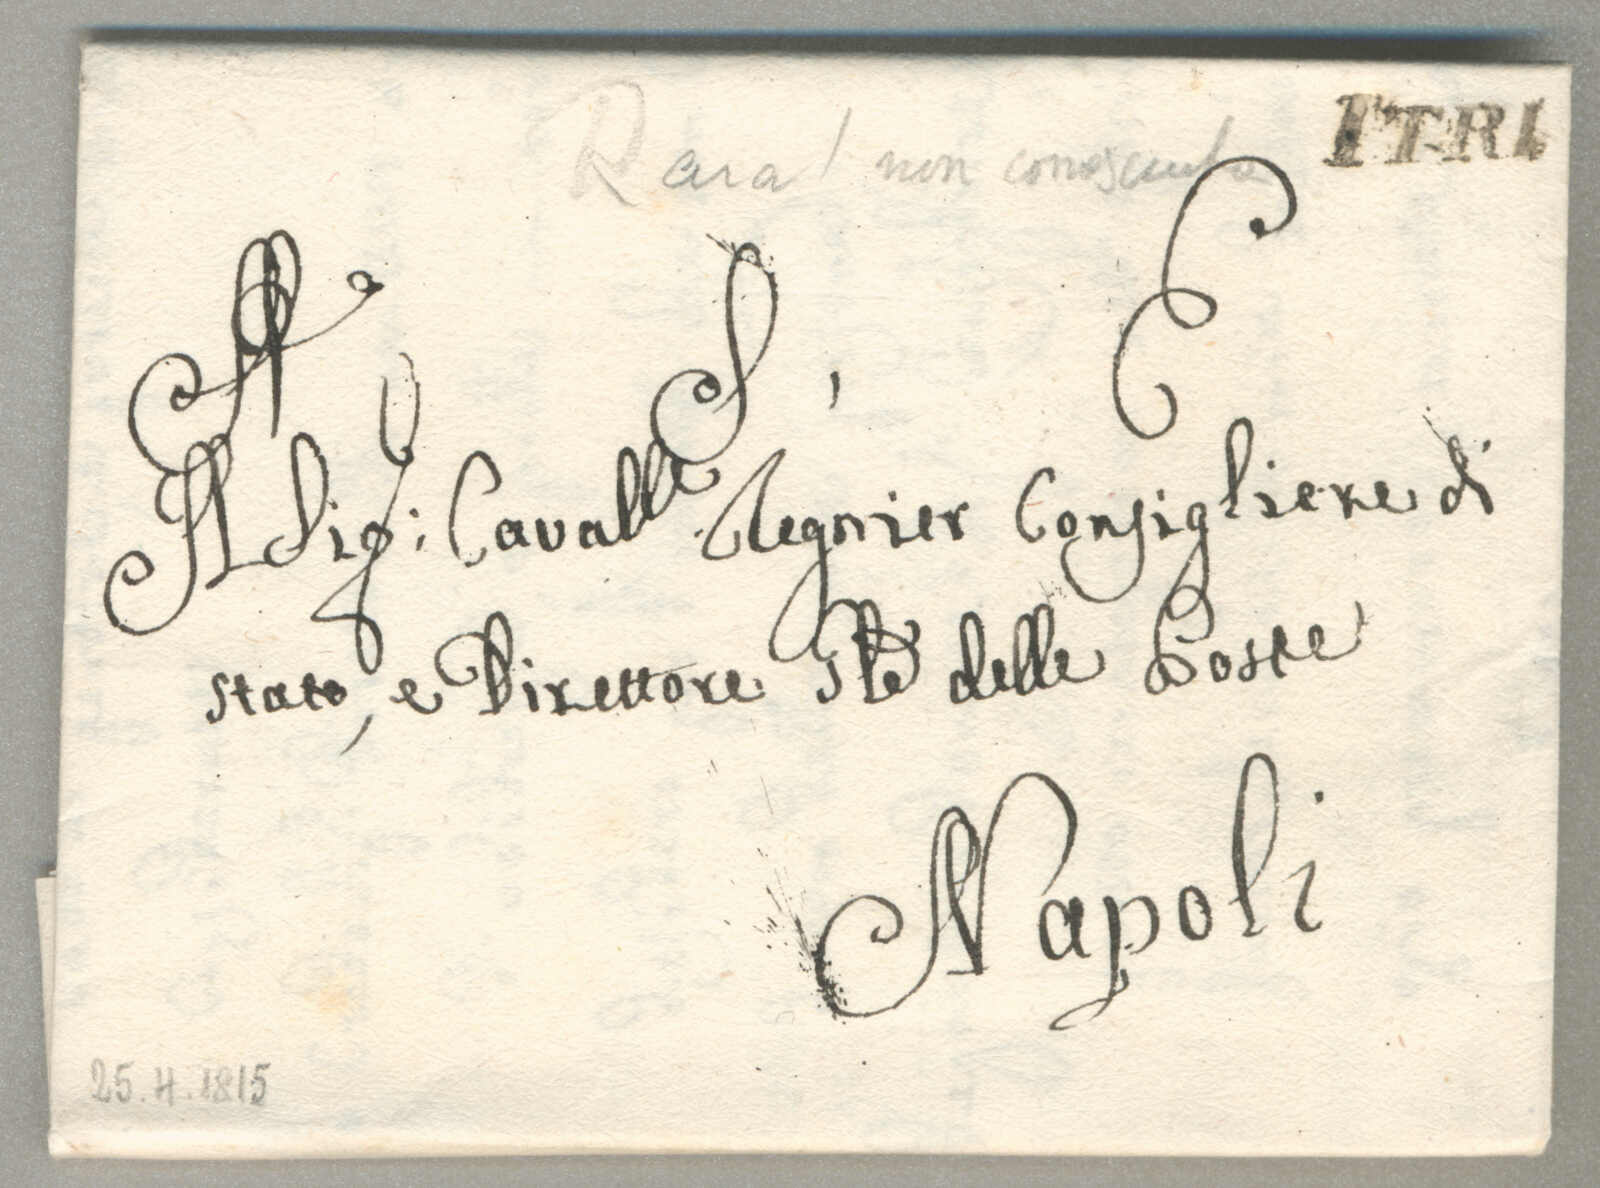 ITRI
Rara! non conosciuta
A S, E
Il Sig: Cavall.re Regnier Consigliere di
Stato, e Direttore delle Poste
Napoli
25.4.1815